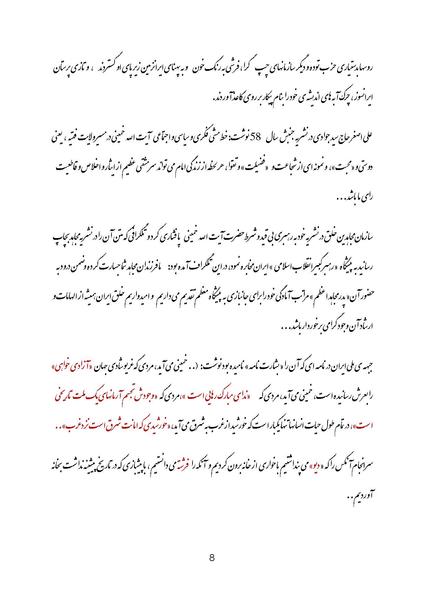 روسها بدستیاری حزب توده و دیگر سازمانهای چپ گرا، فرشی به رنگ خون و به پهنای ایرانزمین زیر پای او گستردند ، و تازی پرستان
ایرانسوز، چرک آبه های اندیشه ی خود را بنام پیکار بر روی کاغذ آوردند.
علی اصغر حاج سید جوادی در نشریه جنبش سال 58 نوشت: خط مشی فکری و سیاسی و اجتماعی آیت الله خمینی در مسیر ولایت فقیه ، یعنی
دوستی و «محبت»، و نمونه ای از شجاعت و «فضیلت» و تقوا، هر لحظه از زندگی امام می تواند سرمشقی عظیم از ایثار و اخلاص و قاطعیت
برای ما باشد...
سازمان مجاهدین خلق در نشریه خود به رهبری بی قید و شرط حضرت آیت الله خمینی پافشاری کرد و تلگرافی که متن آن را در نشریه مجاهد بچاپ
رسانید به پیشگاه «رهبر کبیر انقلاب اسلامی » ایران مخابره نمود، در این تلگراف آمده بود: ما فرزندان مجاهد شما جسارت کرده و ضمن درود به
حضور آن «پدر مجاهد اعظم » مراتب آمادگی خود را برای جانبازی به پیشگاه معظم تقدیم می داریم و امیدواریم خلق ایران همیشه از الهامات و
ارشاد آن وجود گرامی برخوردار باشد...
جبهه ی ملی ایران در نامه ای که آن را « بشارت نامه » نامیده بود نوشت: (.. خمینی می آید، مردی که غریو شادی جهان «آزادی خواهی»
را بعرش رسانیده است، خمینی می آید، مردی که «ندای مبارک رهایی است »، مردی که «وجودش تجسم آرمانهای یک ملت تاریخی
است»، در تمام طول حیات انسانها تنها یکبار است که خورشید از غرب به شرق می آید، «خورشیدی که امانت شرق است نزد غرب»..
سرانجام آنکس را که «دیو» می پنداشتیم با خواری از خانه برون کردیم و آنکه را فرشته می دانستیم ، با پیشبازی که در تاریخ پیشینه نداشت بخانه
آوردیم..
8